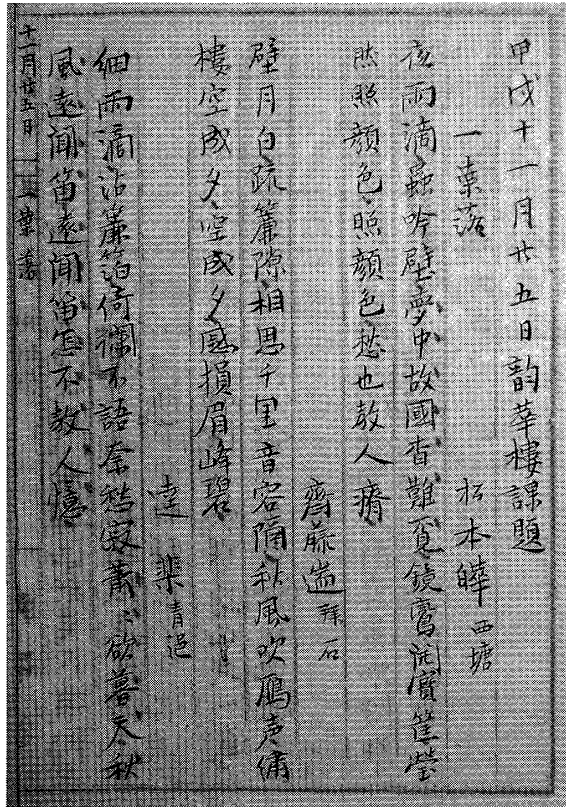 甲戌十一月廿五日韵華樓課題
一葉落　松本皣西塘
夜雨滴蟲吟壁夢中故國杳難覓鏡鸞開寶筐瑩
然照顔色照顔色愁也教人瘠
齊藤遄拜石
壁月白疏簾隙相思千里音容隔秋風吹鴈声傭
樓空成夕空成夕感損眉峰碧
達 槼青邑
細雨滴沾簾箔倚襴不語奈愁寂蕭〻欲暮天秋
風遠聞笛遠聞笛怎不教人憶
十一月廿五日 一葉落